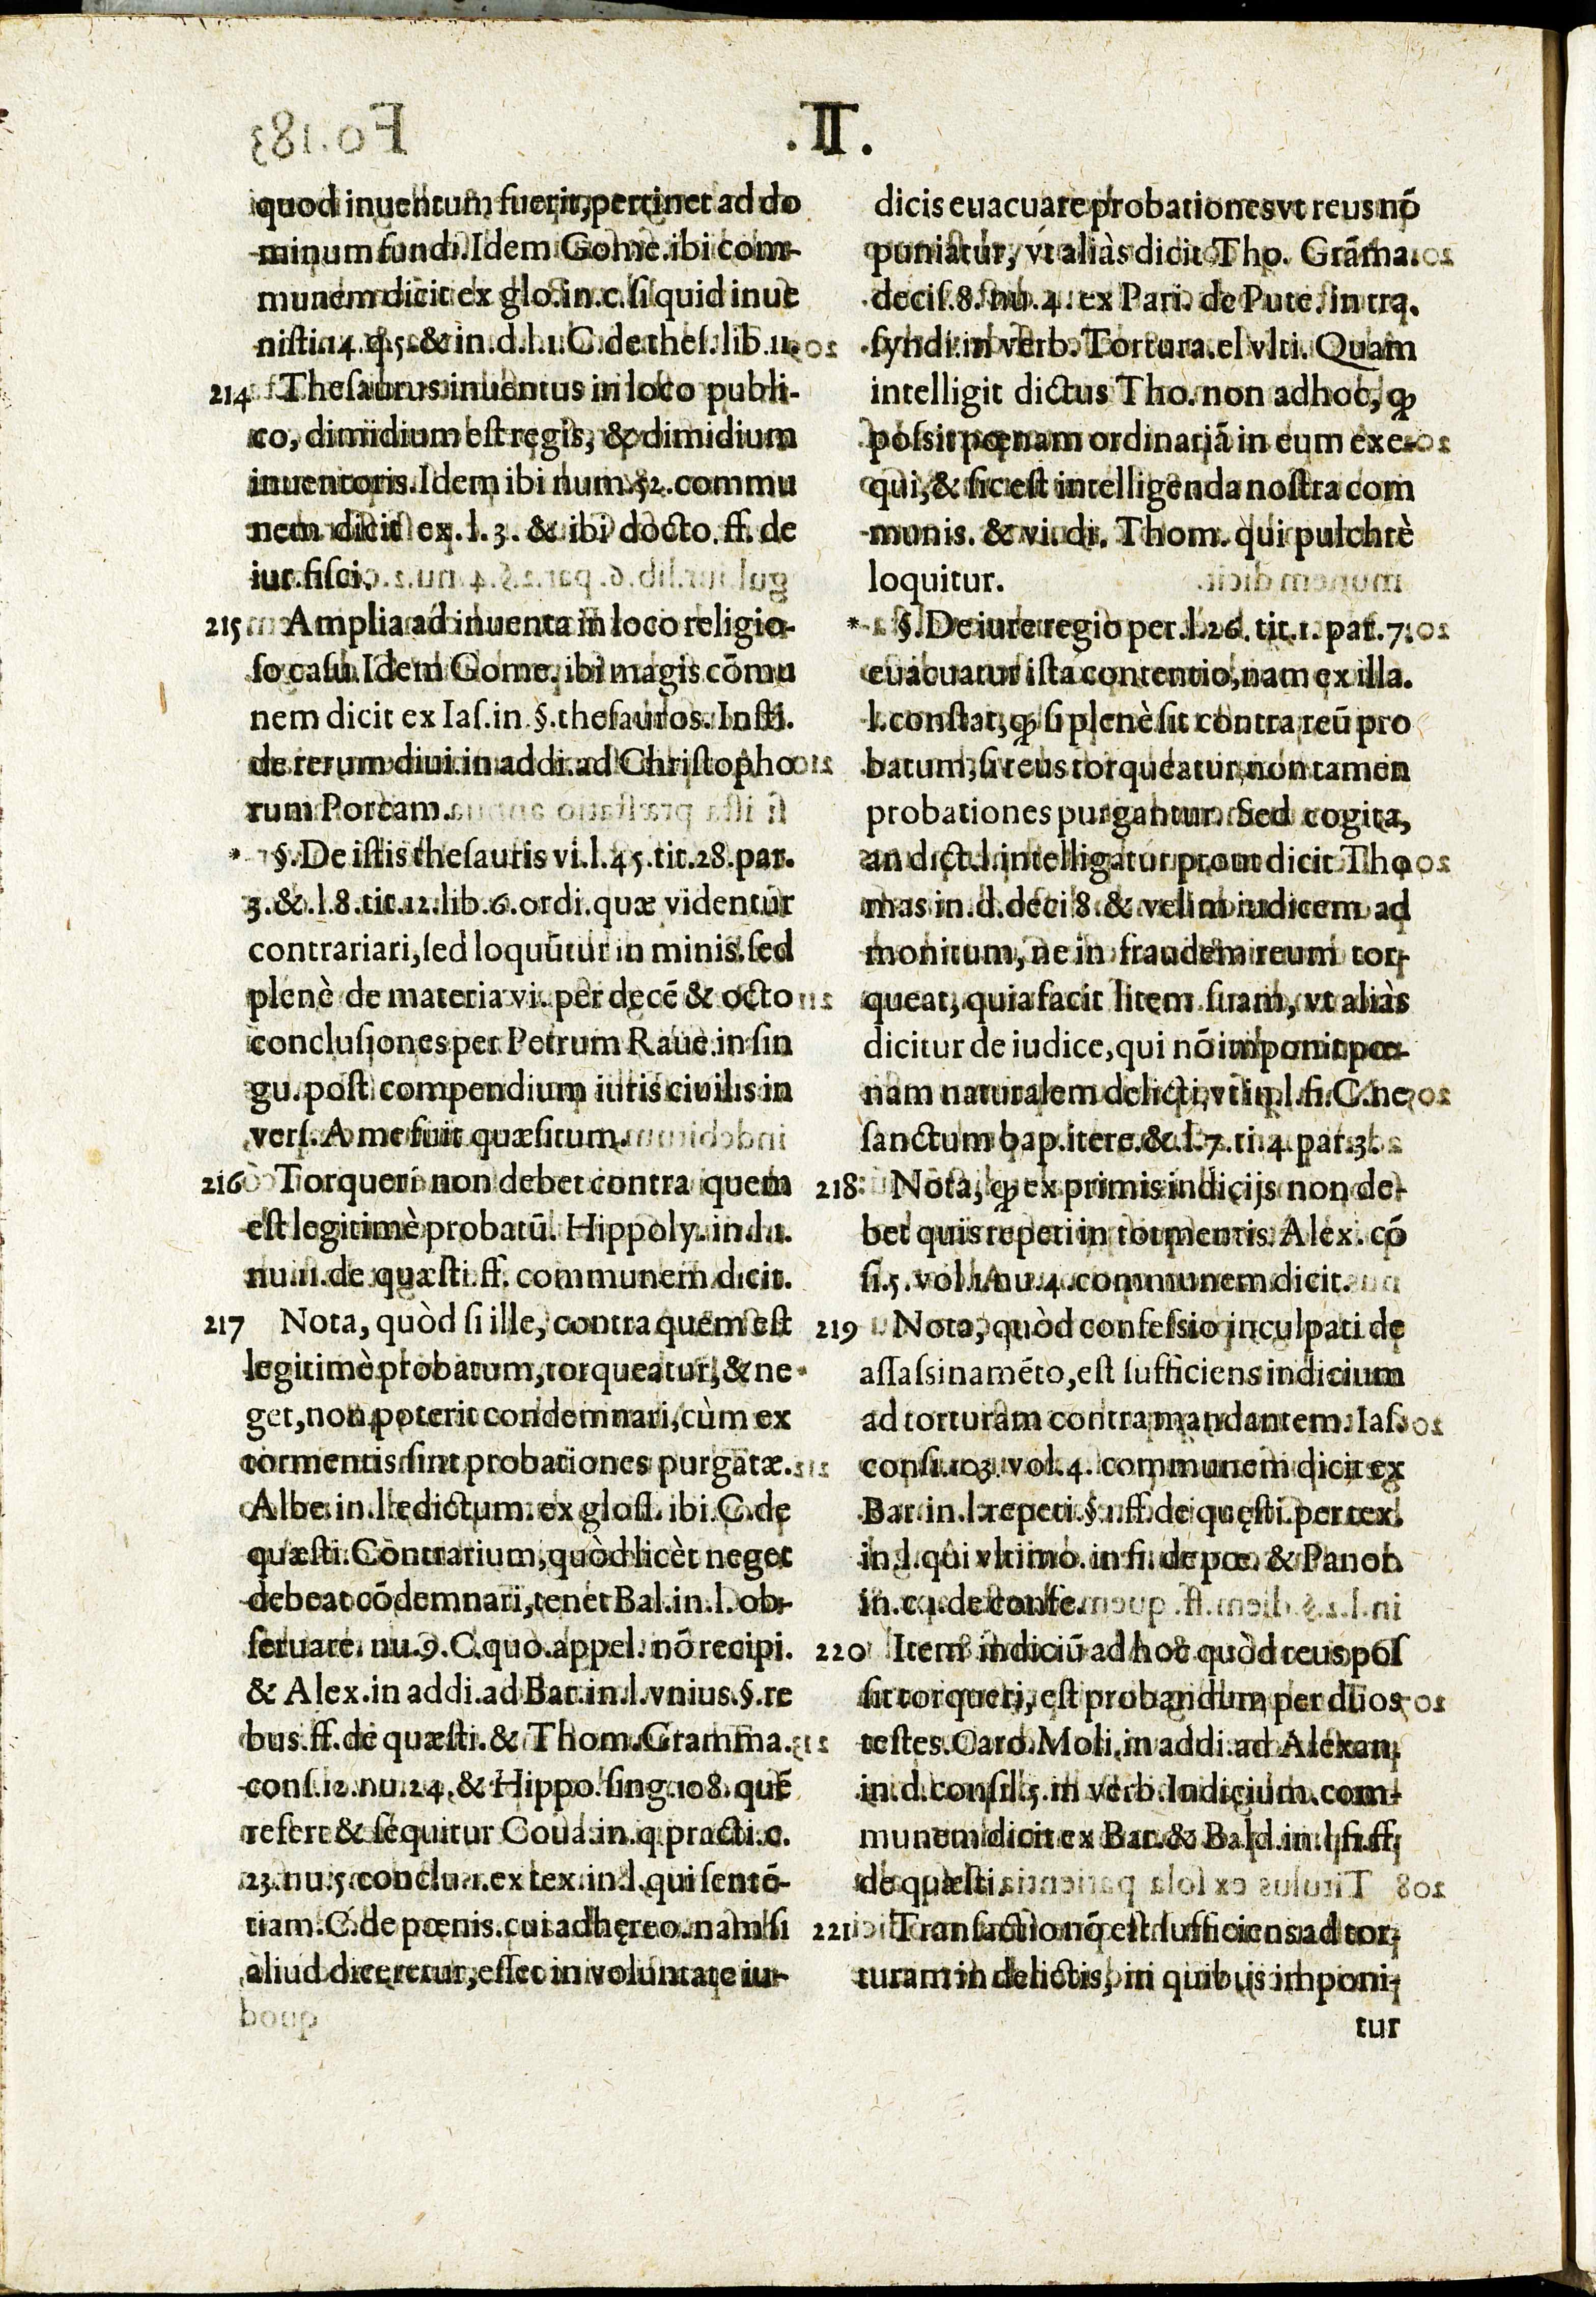 .II.
quod inuentum fuerit, pertinet ad do
minum fundi. Idem Gome. ibi com-
munem dicit ex glo. in. c. si quid inue
nisti. 14. q. 5. & in. d. l. 1. C. de thes. lib. 11.
214 Thesaurus inuentus in loco publi-
co, dimidium est regis, & dimidium
inuentoris. Idem ibi num. 52. commu
nem dicit ex. l. 3. & ibi docto. ff. de
iur. fisci.
215 Amplia ad inuenta in loco religio-
so casu. Idem Gome. ibi magis cōmu
nem dicit ex Ias. in. §. thesauros. Insti.
de rerum diui. in addi. ad Christopho
rum Porcam.
* §. De istis thesauris vi. l. 45. tit. 28. par.
3. & l. 8. tit. 12. lib. 6. ordi. quæ videntur
contrariari, sed loquūtur in minis. sed
plenè de materia vi. per decē & octo
conclusiones per Petrum Raue. in sin
gu. post compendium iuris ciuilis in
vers. A me fuit quæsitum.
216 Torqueri non debet contra quem
est legitimè probatū. Hippoly. in. l. 1.
nu. 11. de quæsti. ff. communem dicit.
217 Nota, quòd si ille, contra quem est
legitimè probatum, torqueatur, & ne-
get, non poterit condemnari, cùm ex
tormentis sint probationes purgatæ.
Albe. in. l. edictum. ex glos. ibi C. de
quæsti. Contrarium, quòd licèt neget
debeat cōdemnari, tenet Bal. in. l. ob-
seruare. nu. 9. C. quo. appel. nō recipi.
& Alex. in addi. ad Bar. in. l. vnius. §. re
bus. ff. de quæsti. & Thom. Gramma.
cons. 12. nu. 24. & Hippo. sing. 108. quē
refert & sequitur Coua. in. q. practi. c.
23. nu. 5. conclu. 1. ex tex. in. l. qui sentē-
tiam. C. de pœnis. cui adhęreo. nam si
aliud diceretur, esset in voluntate iu-
dicis euacuare probationes vt reus nō
puniatur, vt aliàs dicit Tho. Grāma.
decis. 8. nu. 4. ex Pari. de Pute. in tra.
syndi. in verb. Tortura. el vlti. Quam
intelligit dictus Tho. non adhoc, ꝙ
possit pœnam ordinariā in eum exe-
qui, & sic est intelligenda nostra com
munis. & vi. di. Thom. qui pulchrè
loquitur.
* §. De iure regio per. l. 26. tit. 1. par. 7.
euacuatur ista contentio, nam ex illa.
l. constat, ꝙ si plenè sit contra reū pro
batum, si reus torqueatur, non tamen
probationes purgantur. Sed cogita,
an dict. l. intelligatur prout dicit Tho
mas in. d. deci 8. & velim iudicem ad
monitum, ne in fraudem reum tor-
queat, quia facit litem suam, vt aliàs
dicitur de iudice, qui nō imponit pœ-
nam naturalem delicti, vt in. l. fi. C. ne
sanctum bap. itere. & l. 7. ti. 4. par. 3.
218 Nota, ꝙ ex primis indicijs non de-
bet quis repeti in tormentis. Alex. cō
si. 5. vol. 1. nu. 4. communem dicit.
219 Nota, quòd confessio inculpati de
assassinamēto, est sufficiens indicium
ad torturam contra mandantem. Ias.
consi. 103. vol. 4. communem dicit ex
Bar. in. l. repeti. §. 1. ff. de quęsti. per tex.
in. l. qui vltimo. in fi. de pœ. & Panor.
in. c. 1. de confe.
220 Item indiciū ad hoc quòd reus pos
sit torqueri, est probandum per duos
testes. Caro. Moli. in addi. ad Alexan.
in. d. consil. 5. in verb. Indicium. com-
munem dicit ex Bar. & Bald. in. l. fi. ff.
de quæsti.
221 Transactio nō est sufficiens ad tor-
turam in delictis, in quibus imponi-
tur